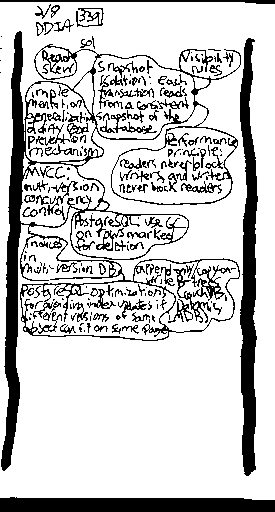 2/8
DDIA 239
sol
Read skew
Snapshot
isolation: Each
transaction reads
from a consistent
snapshot of the
database
Visibility
rules
Imple
mentation
generalization
of dirty read
prevention
mechanism
Performance
principle:
readers never block
writers, and writers
never block readers
MVCC:
multi-version
concurrency
control
PostgreSQL: use GC
on rows marked
for deletion
Indices
in
multi-version DB
append only/copy-on-
write B-trees
CouchDB,
Datomic,
LMDB
PostgreSQL: optimizations
for avoiding index updates if
different versions of same
object can fit on same page